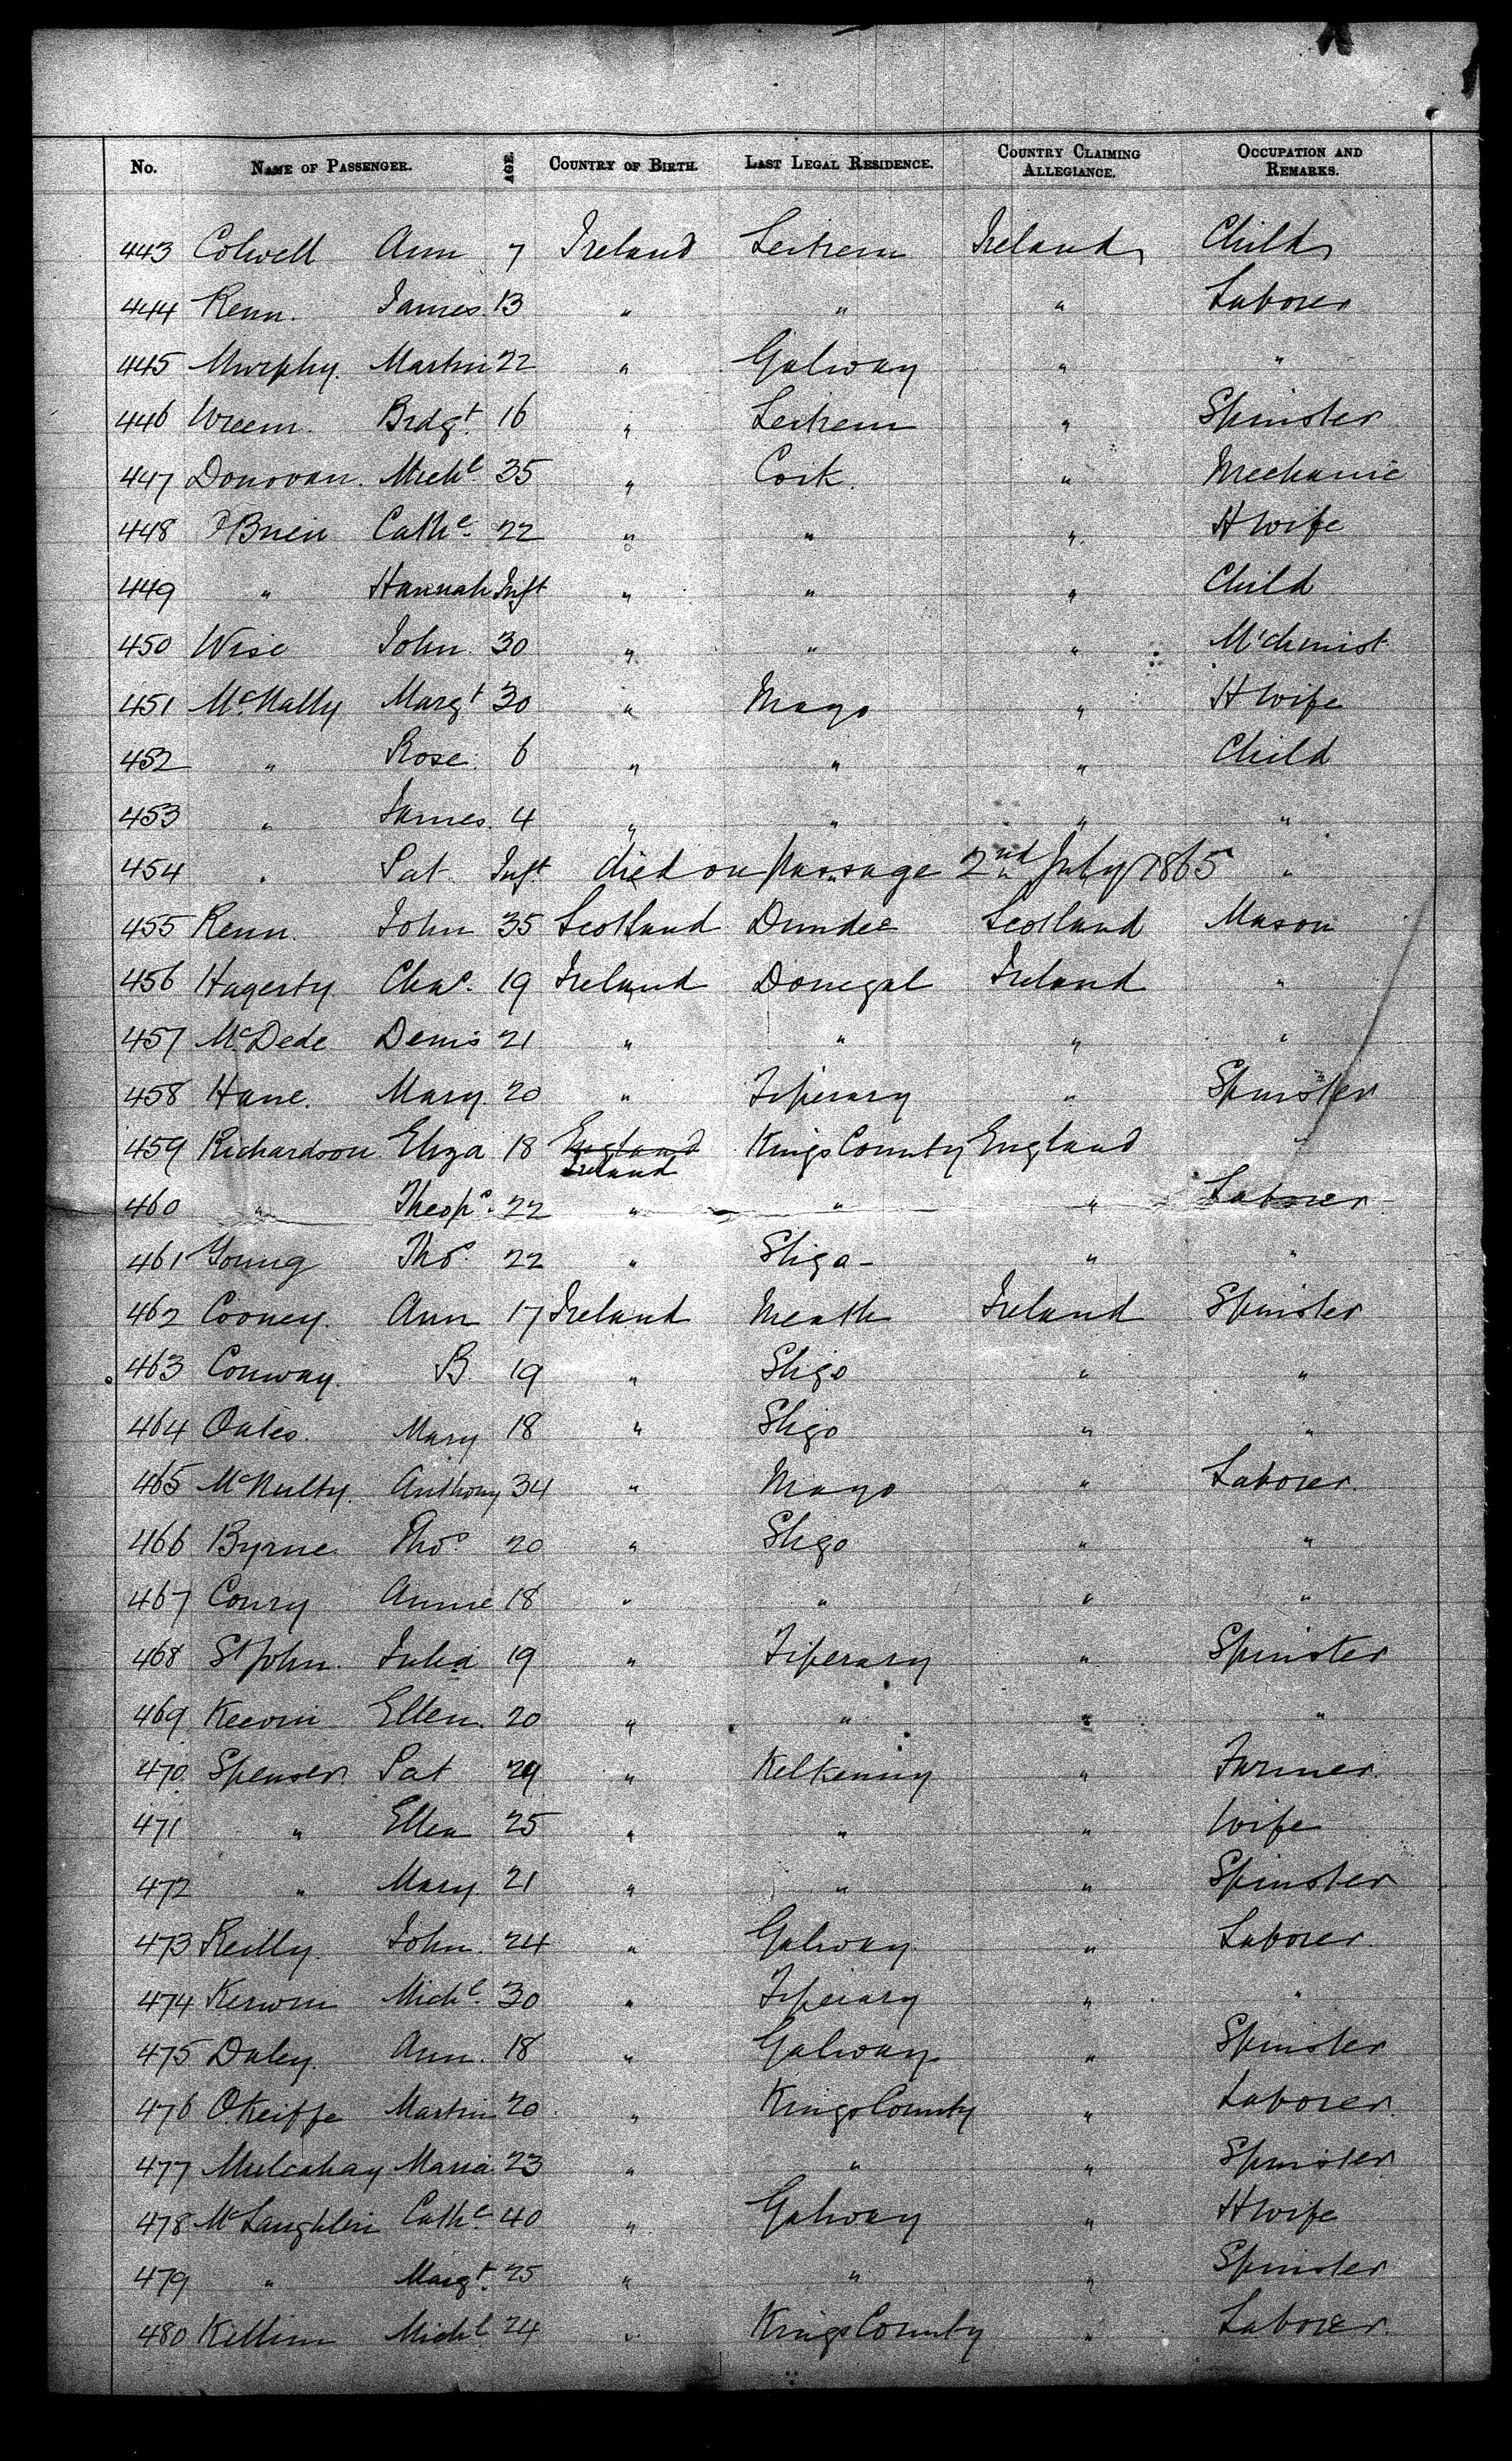 No. NAME OF PASSENGER. AGE. COUNTRY OF BIRTH. LAST LEGAL RESIDENCE. COUNTRY CLAIMING ALLEGIANCE. OCCUPATION AND REMARKS.
443 Colwell Ann 7 Ireland Leitrem Ireland Child
444 Renn. James 13 " " " Laborer
445 Murphy. Martin 22 " Galway " "
446 Brdgt. 16 " Leitrem " Spinster
447 Donovan. Michl 35 " Cork. " Mechanic
448 O'Brien Cathe. 22 " " " H Wife
449 " Hannah Inft " " " Child
450 Wise John 30 " " " M'chinist
451 McNally Margt 30 " Mayo " H Wife
452 " Rose. 6 " " " Child
453 " James. 4 " " " "
454 " Pat Inft. died on passage 2nd July 1865 "
455 Renn. John 35 Scotland Dundee Scotland Mason
456 Hagerty Chas. 19 Ireland Donegal Ireland "
457 McDede Denis 21 " " " "
458 Hane. Mary. 20 " Tiperary " Spinster
459 Richardson Eliza 18 England Ireland Kings County England "
460 " Theops. 22 " " " Laborer
461 Young Thos. 22 " Sligo - " "
462 Cooney. Ann 17 Ireland Meath Ireland Spinster
463 Conway. B. 19 " Sligo " "
464 Oates. Mary 18 " Sligo " "
465 McNulty. Anthony 34 " Mayo " Laborer.
466 Byrne Thos. 20 " Sligo " "
467 Conry Annie 18 " " " "
468 St John. Julia 19 " Tiperary " Spinster
469 Keevin Ellen. 20 " " " "
470 Spenser. Pat 29 " Kelkenny " Farmer.
471 " Ellen 25 " " " Wife
472 " Mary. 21 " " " Spinster
473 Reilly. John. 24 " Galway. " Laborer.
474 Kerwin Michl. 30 " Tiperary " "
475 Daley. Ann. 18 " Galway. " Spinster
476 O.Keiffe Martin 20 " Kings County " Laborer.
477 Mulcahay Maria 23 " " " Spinster.
478 McLaughlin Cathe. 40 " Galway " H Wife
479 " Margt. 25 " " " Spinster
480 Killim Michl. 24 " Kings County " Laborer.